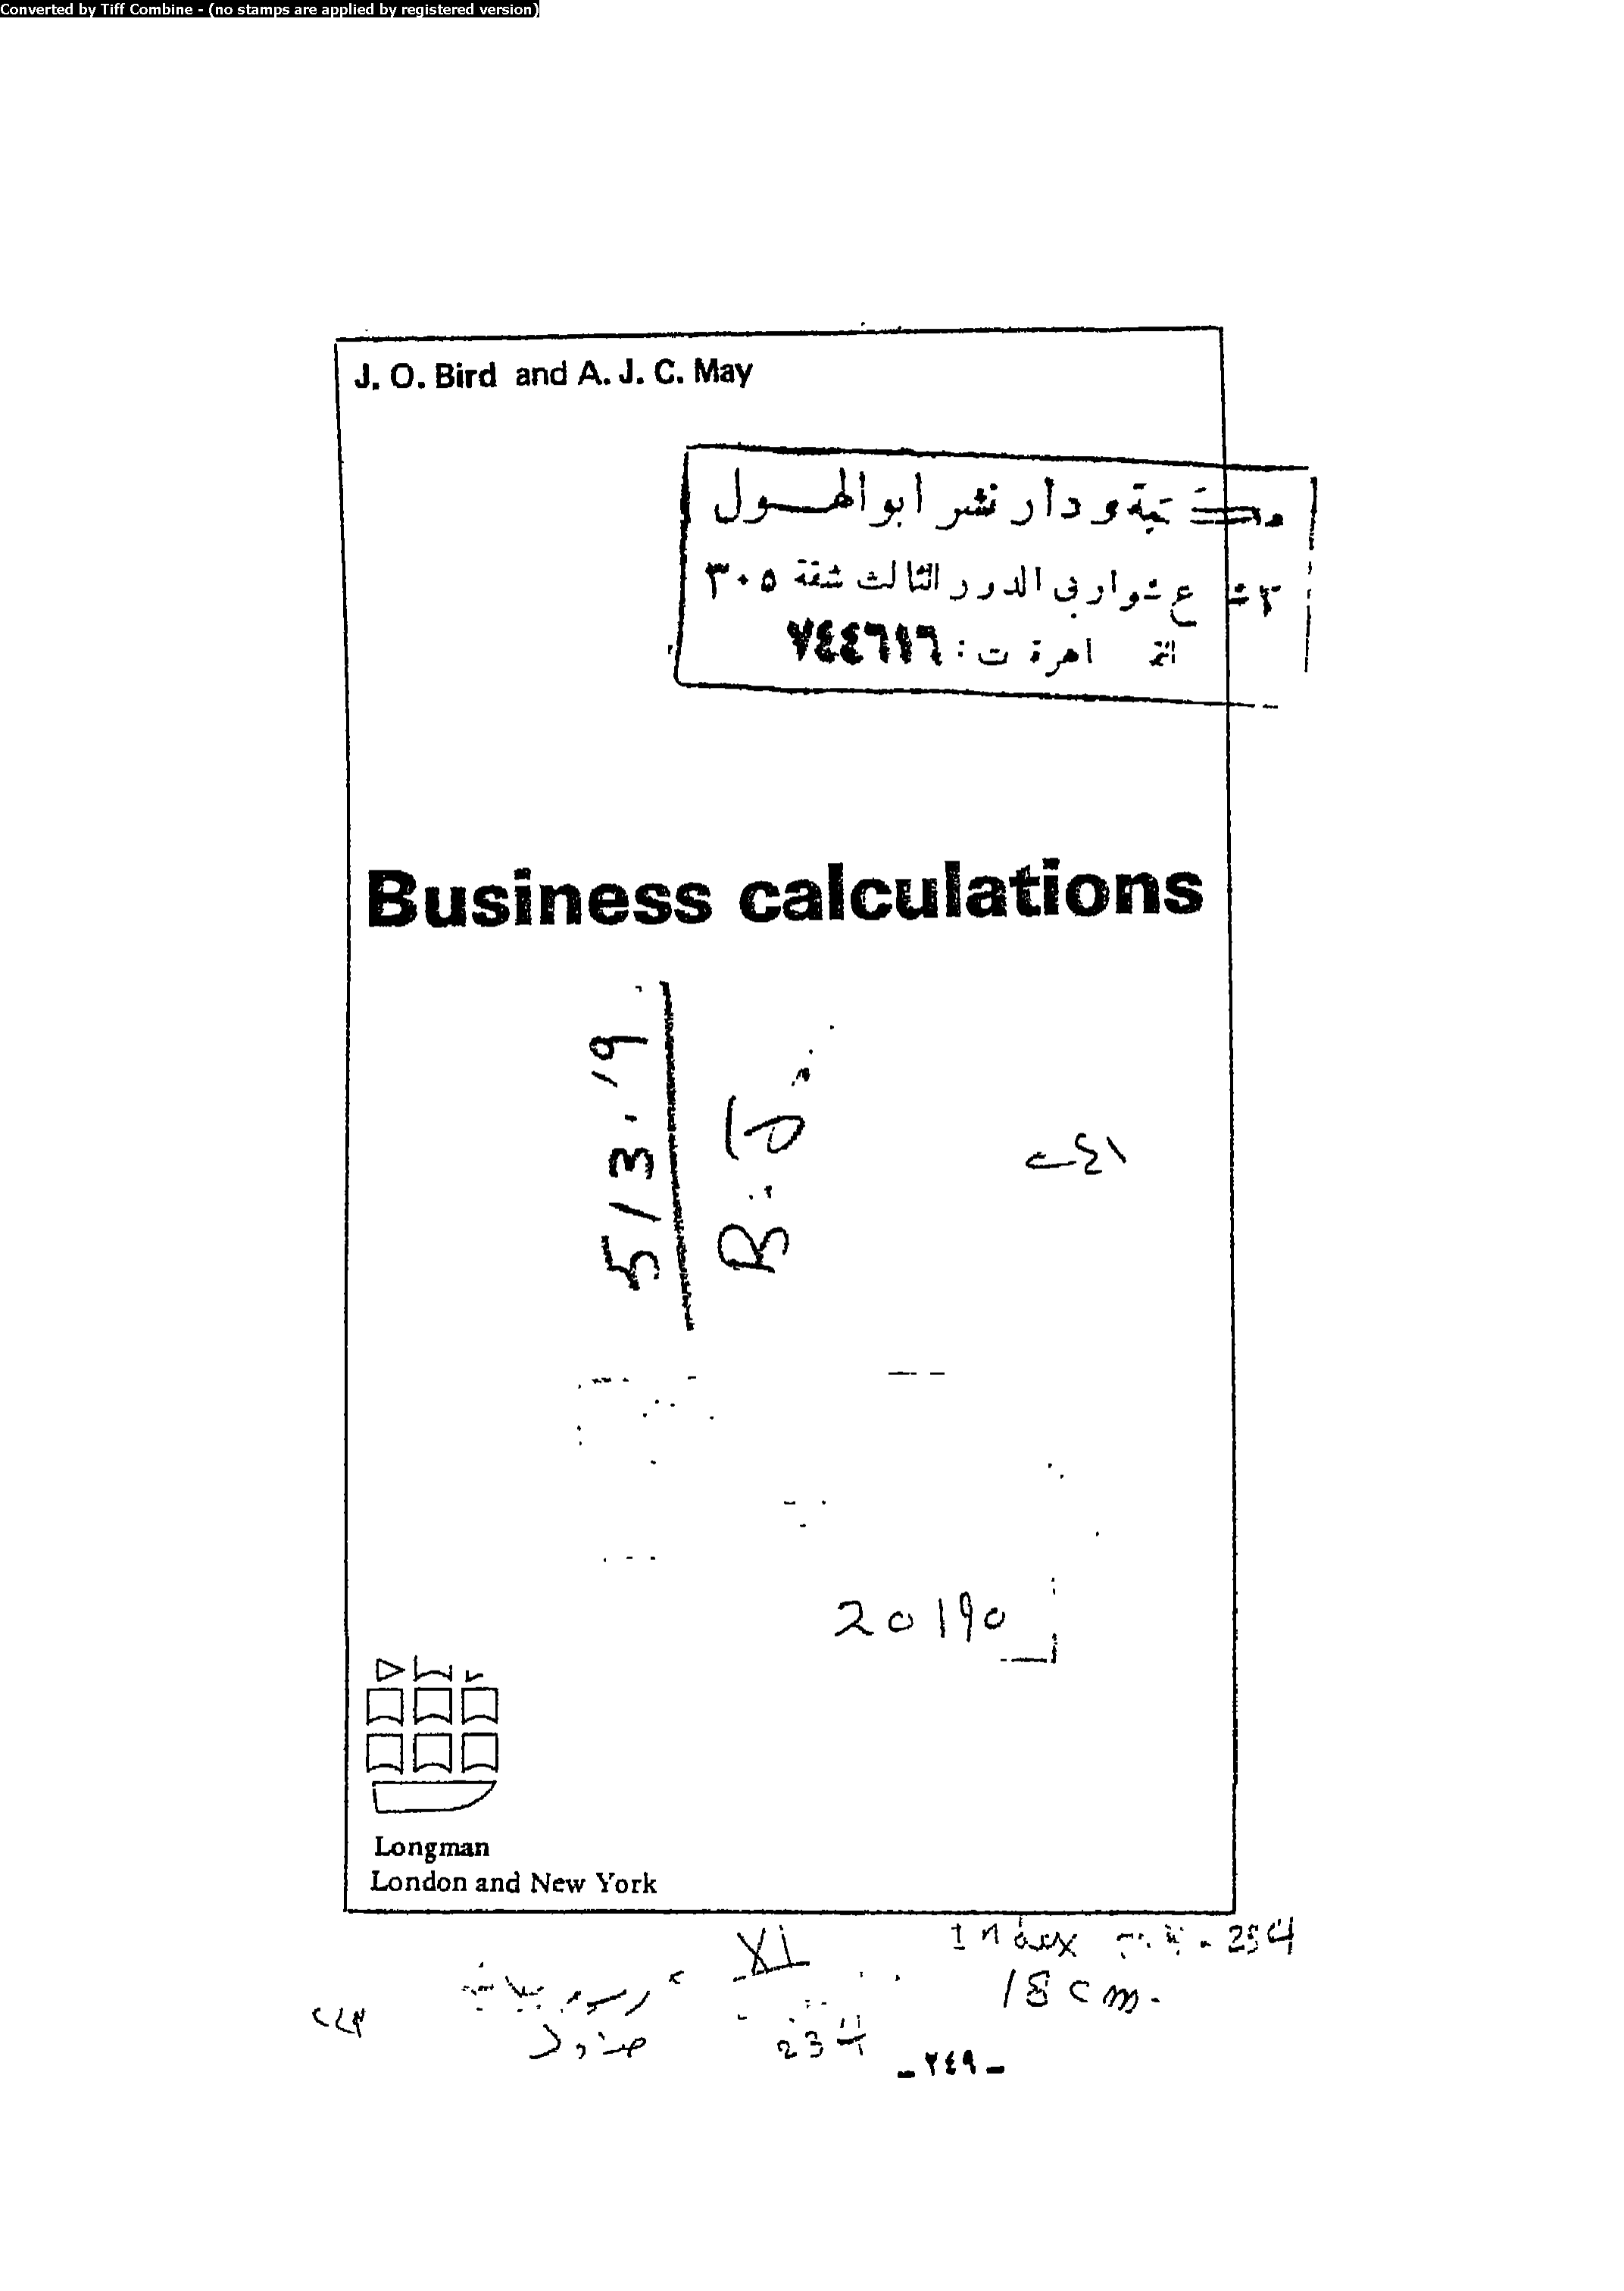 Converted by Tiff Combine - (no stamps are applied by registered version)
J. O. Bird and A. J. C. May
مكتبة ودار نشر ابو الهول
٣ ش شواربى الدور الثالث شقة ٣٠٥
القاهرة ت : ٧٤٤٦١٦
Business calculations
513.19
B.
20190
Longman
London and New York
XI
Index 234
18 cm.
234
- ٢٤٩ -